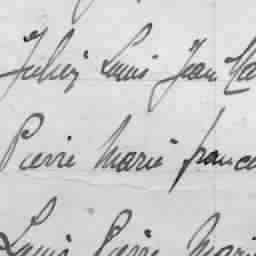 Julien Louis Jean Ma
Pierre Marie franco
Louis Pierre Mari